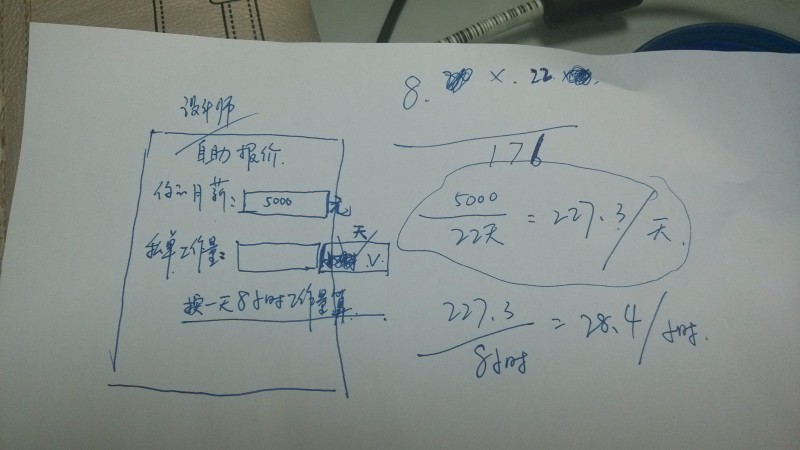 设计师
自助报价.
你的月薪: 5000 元
私单工作量: 天 V
按一天8小时工作量算.
8. × . 22
176
5000
22天
= 227.3/天.
227.3
8小时
= 28.4/小时.